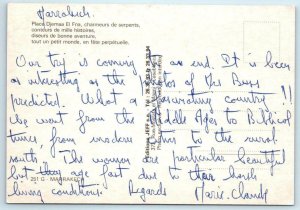 Marrakech.
Place Djemaa El Fna, charmeurs de serpents,
conteurs de mille histoires,
diseurs de bonne aventure,
tout un petit monde, en fête perpétuelle.
Our trip is coming to an end. It is been
as interesting as the photos of the Buss
predicted. What a fascinating country!!
We went from the Middle Ages to Biblical
times from modern cities to the rural
south. The women are particular beautiful
but they age fast due to their harsh
living conditions. Regards Marie-Claude
251 G - MARRAKECH